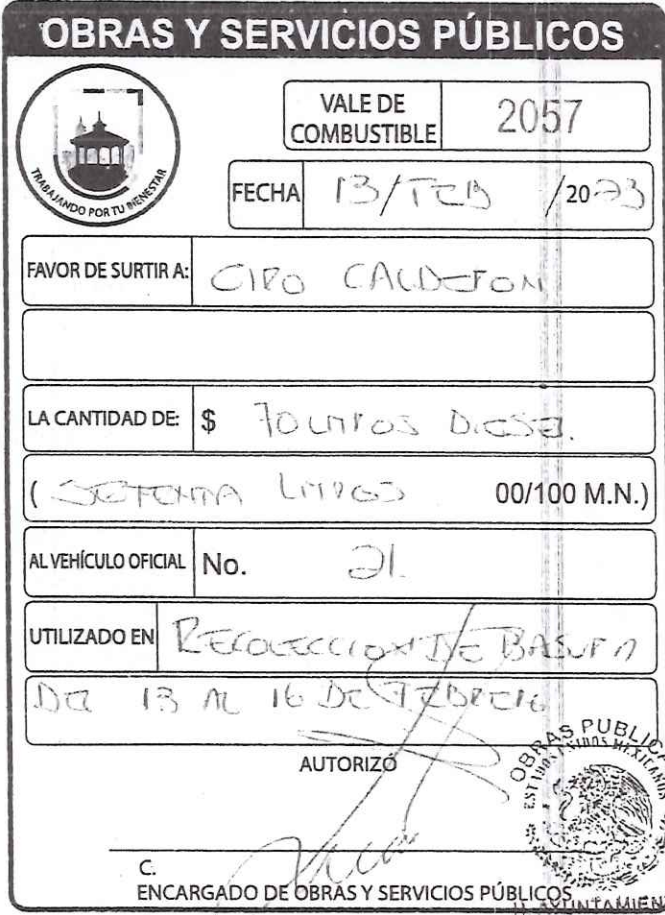 OBRAS Y SERVICIOS PÚBLICOS
TRABAJANDO POR TU BIENESTAR
VALE DE COMBUSTIBLE 2057
FECHA 13/FEB /2023
FAVOR DE SURTIR A: CIRO CALDERON
LA CANTIDAD DE: $ 70 LITROS DIESEL.
( SETENTA LITROS 00/100 M.N.)
AL VEHÍCULO OFICIAL No. 21.
UTILIZADO EN RECOLECCION DE BASURA
DEL 13 AL 16 DE FEBRERO
AUTORIZÓ
OBRAS PUBLICA
ESTADOS UNIDOS MEXICANOS
C.
ENCARGADO DE OBRAS Y SERVICIOS PÚBLICOS
H. AYUNTAMIEN